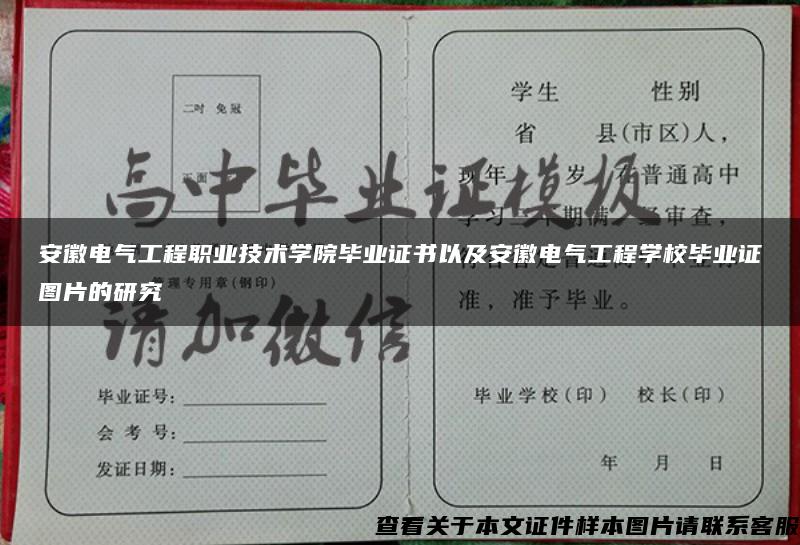 二吋 免冠
正面
学生 性别
省 县(市区)人，
现年 岁 在普通高中
高中毕业证模板
安徽电气工程职业技术学院毕业证书以及安徽电气工程学校毕业证
图片的研究
管理专用章(钢印)
准，准予毕业。
请加微信
毕业证号：
会 考 号：
发证日期：
毕业学校(印) 校长(印)
年 月 日
查看关于本文证件样本图片请联系客服